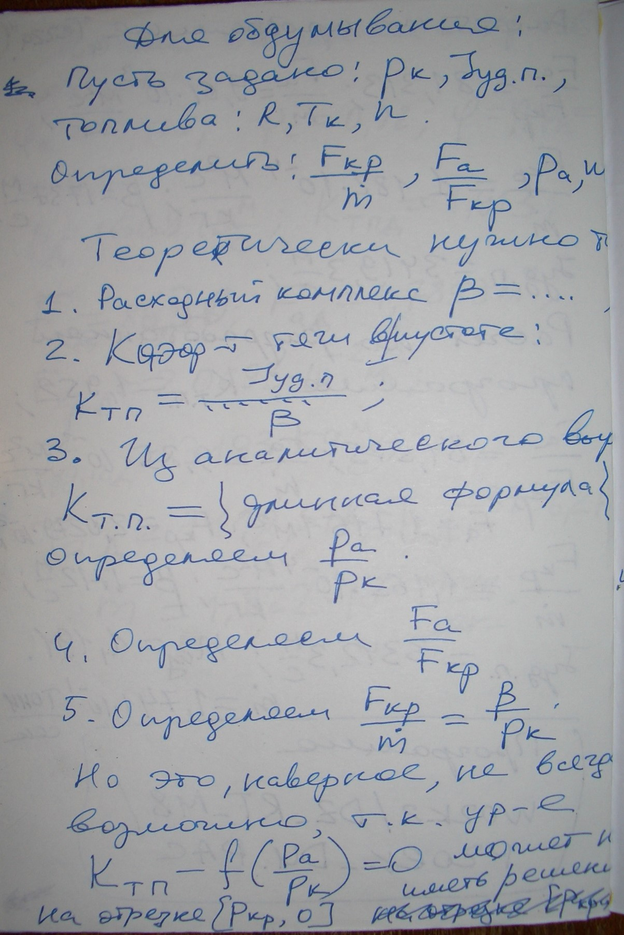 Для обдумывания:
Пусть задано: Pк, Jуд.п.,
топлива: R, Tк, n.
Определить: Fкр/ṁ, Fa/Fкр, Pa, и
Теоретически нужно
1. Расходный комплекс β = ....,
2. Коэф-т тяги в пустоте:
Kтп = Jуд.п/β;
3. Из аналитического выр
Kт.п. = {длинная формула}
определяем Pa/Pк.
4. Определяем Fa/Fкр
5. Определяем Fкр/ṁ = β/Pк.
Но это, наверное, не всегда
возможно, т.к. ур-е
Kтп - f(Pa/Pк) = 0 может н
иметь решени
на отрезке [Pкр, 0]